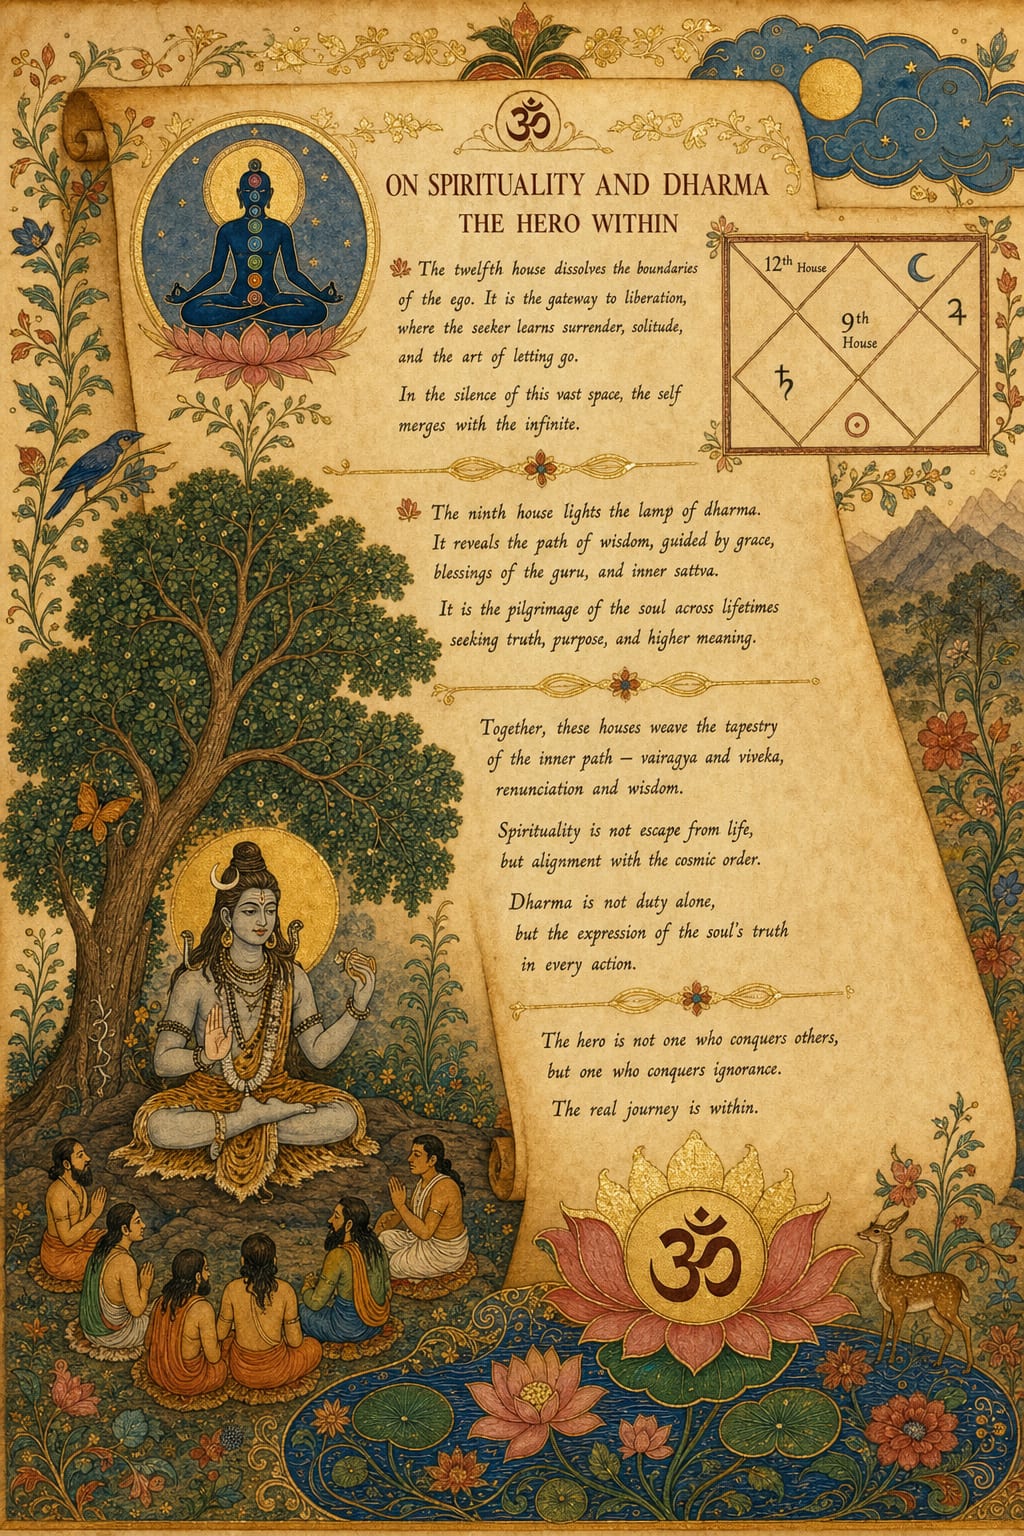 ॐ
ON SPIRITUALITY AND DHARMA
THE HERO WITHIN
The twelfth house dissolves the boundaries
of the ego. It is the gateway to liberation,
where the seeker learns surrender, solitude,
and the art of letting go.
In the silence of this vast space, the self
merges with the infinite.
12th House
9th
House
♃
♄
☉
The ninth house lights the lamp of dharma.
It reveals the path of wisdom, guided by grace,
blessings of the guru, and inner sattva.
It is the pilgrimage of the soul across lifetimes
seeking truth, purpose, and higher meaning.
Together, these houses weave the tapestry
of the inner path — vairagya and viveka,
renunciation and wisdom.
Spirituality is not escape from life,
but alignment with the cosmic order.
Dharma is not duty alone,
but the expression of the soul's truth
in every action.
The hero is not one who conquers others,
but one who conquers ignorance.
The real journey is within.
ॐ